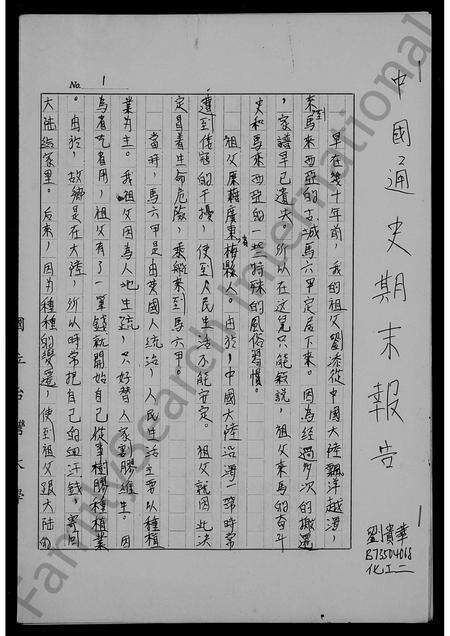 1
中國通史期末報告
劉貴華
B73504068
化工二
No. 1
早在幾十年前，我的祖父劉添從中國大陸飄洋越海，
來到馬來西亞的古城馬六甲定居下來。因為經過多次的搬遷
，家譜早已遺失。所以在這兒只能敘說，祖父來馬的奮斗
史和馬來西亞的一些特殊的風俗習慣。
祖父原籍廣東梅縣人。由於，中國大陸沿海一帶時常
遭到倭寇的干擾，使到人民生活不能安定。祖父就因此決
定冒着生命危險，乘船來到馬六甲。
當時，馬六甲是由英國人統治，人民生活主要以種植
業為主。我祖父因為人地生疏，只好替人家割膠維生。因
為省吃省用，祖父有了一筆錢就開始自己從事樹膠種植業
。由於，故鄉是在大陸，所以時常把自己的血汗錢，寄回
大陸給家里。后來，因為種種的變遷，使到祖父跟大陸的
國立台灣大學
FamilySearch International